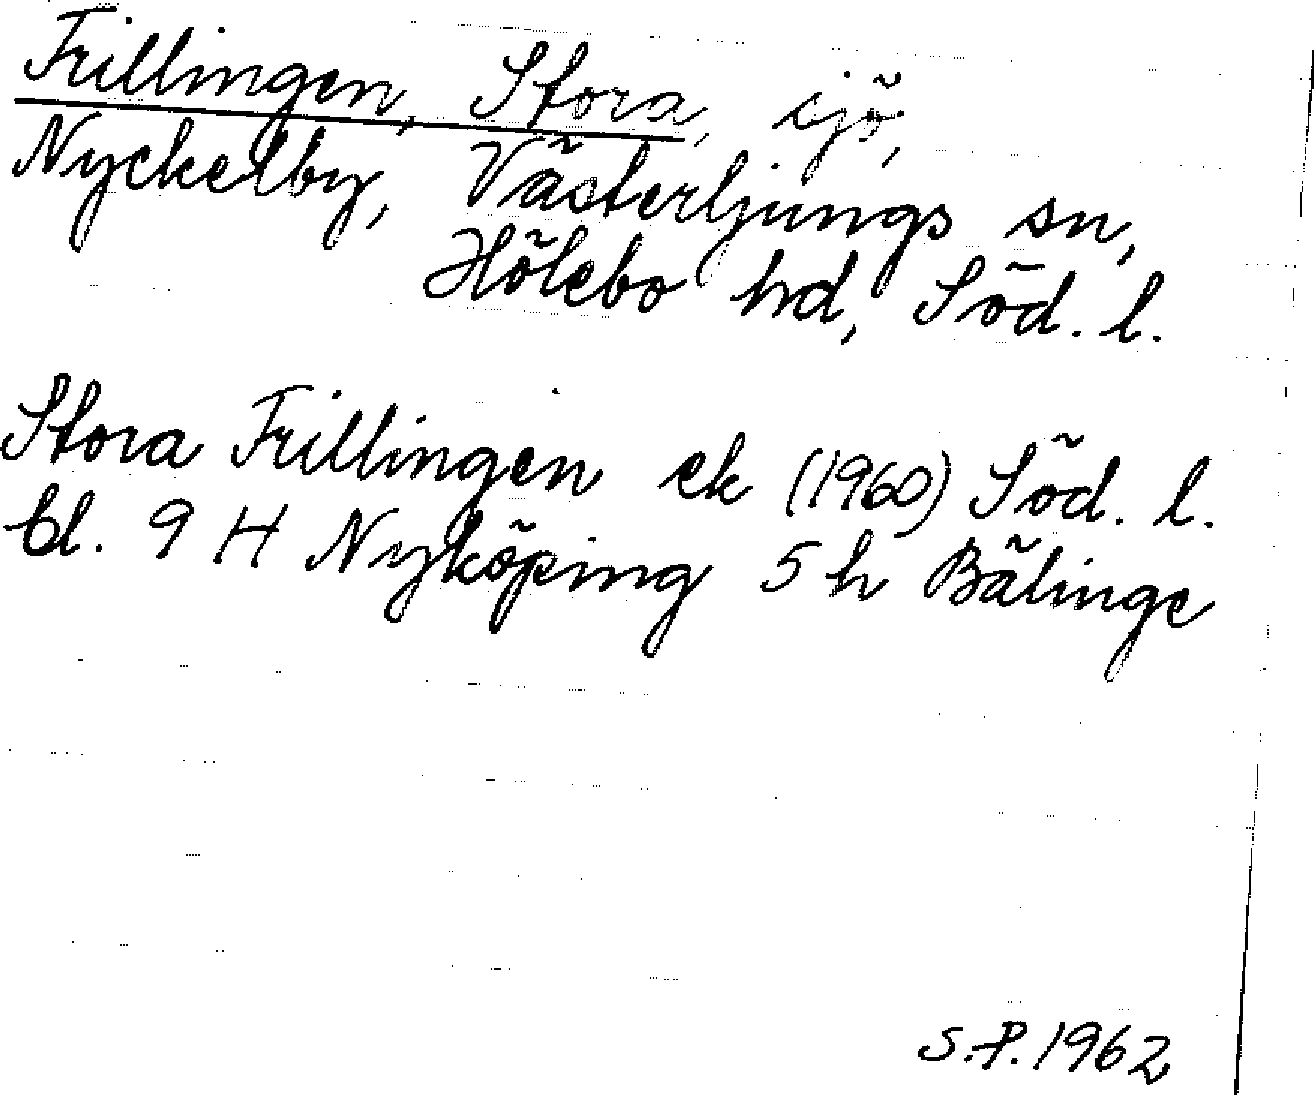 Trillingen, Stora, sjö,
Nyckelby, Västerljungs sn,
Hölebo hd, Söd. l.
Stora Trillingen ek (1960) Söd. l.
bl. 9 H Nyköping 5 h Bälinge
S.P. 1962